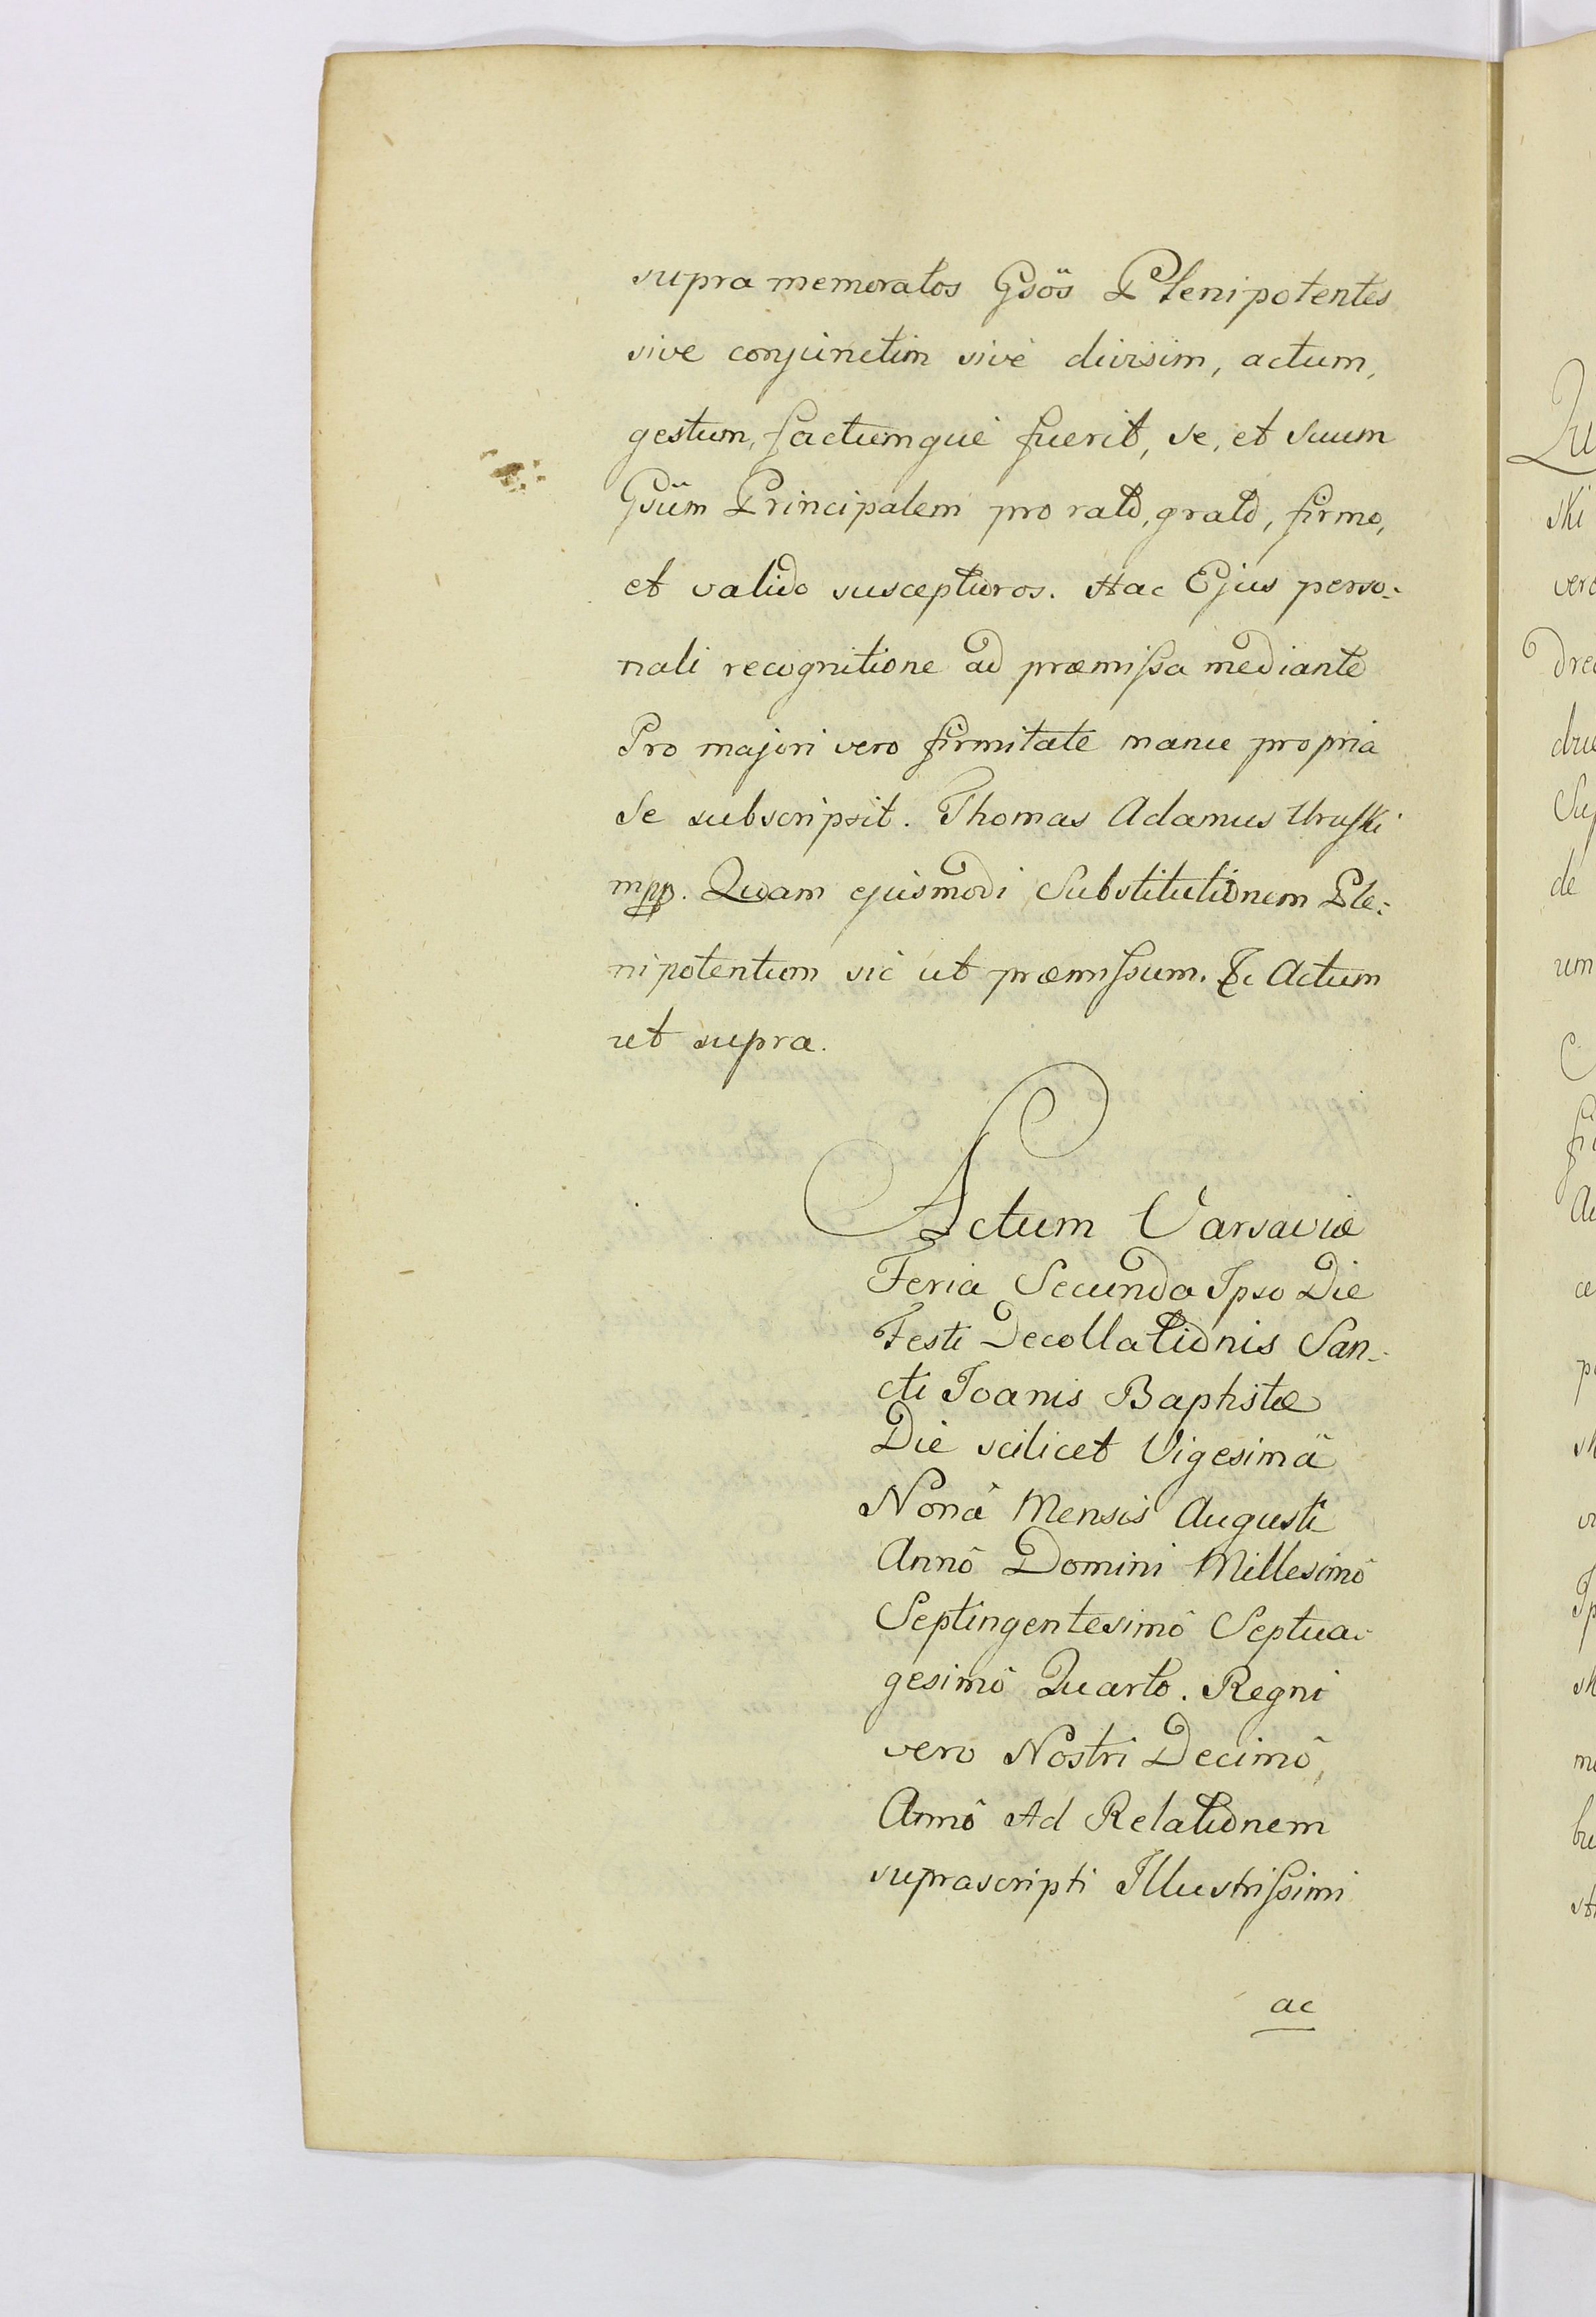 supra memoratos Gsös Plenipotentes
sive conjunctim sive divisim, actum,
gestum, factumque fuerit, se, et suum
Gsüm Principalem pro rato, grato, firmo,
et valido suscepturos. Hac Ejus perso:
nali recognitione ad præmissa mediante
Pro majori vero firmitate manu propria
se subscripsit. Thomas Adamus Uruski
mpp. Quam ejusmodi Substitutionem Ple:
nipotentum sic ut præmissum. &c Actum
ut supra.
Actum Varsaviæ
Feria Secunda Ipso Die
Festi Decollationis San:
cti Joanis Baptistæ
Die scilicet Vigesimâ
Nonâ Mensis Augusti
Annô Domini Millesimô
Septingentesimô Septua:
gesimô Quarto. Regni
vero Nostri Decimô
Annô Ad Relationem
suprascripti Illustrissimi
ac